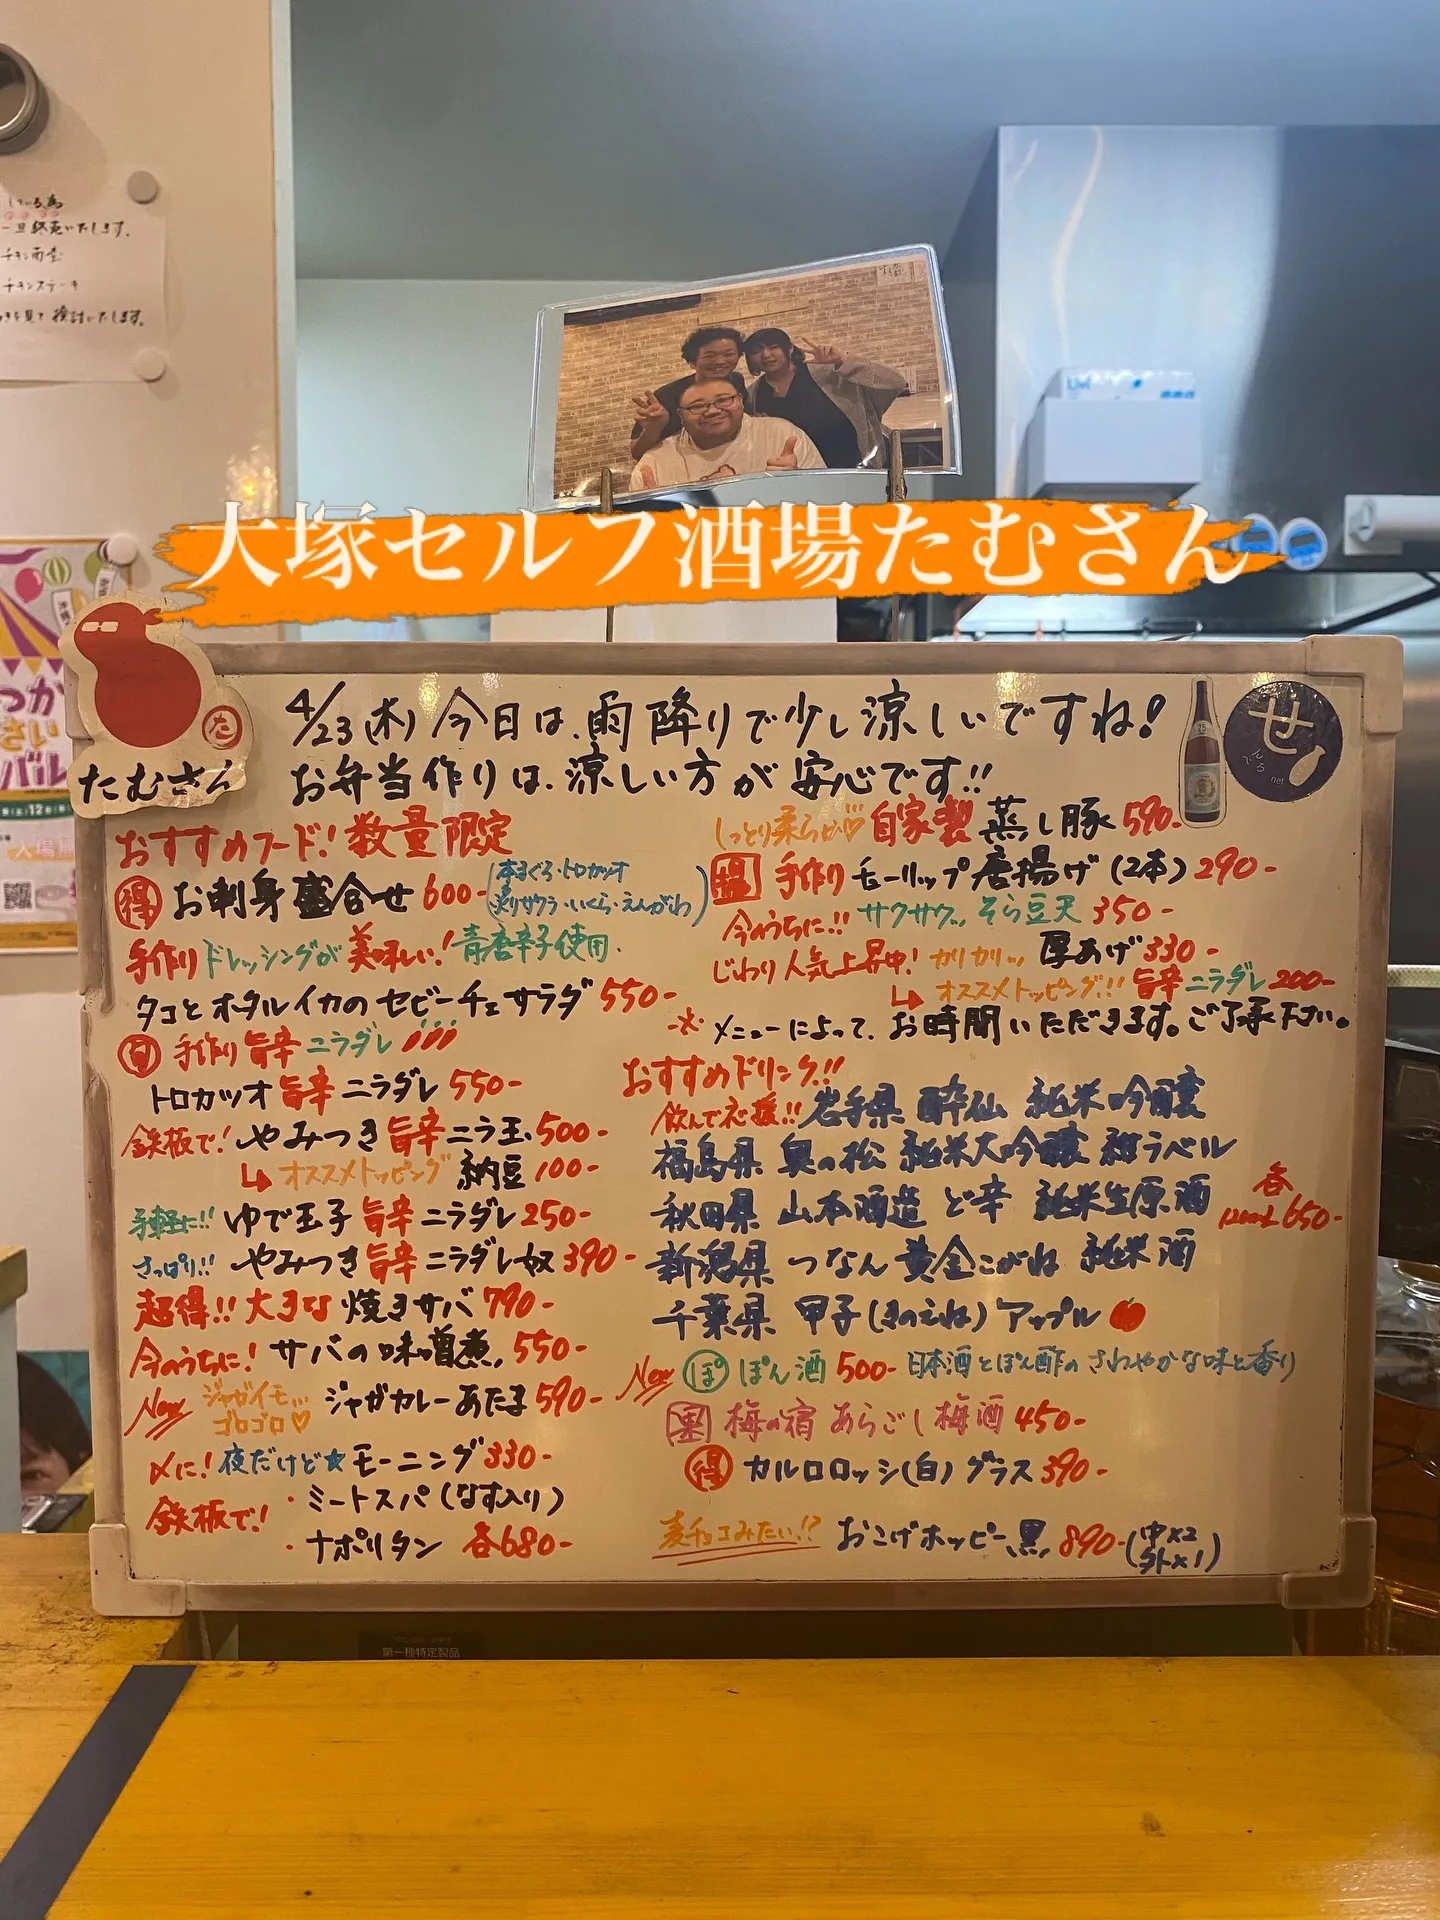 一旦終売いたします。
チキン南蛮
チキンステーキ
を見て検討いたします。
大塚セルフ酒場たむさん
た
たむさん
せ
んべろ
net
4/23(木)今日は、雨降りで少し涼しいですね!
お弁当作りは、涼しい方が安心です!!
おすすめフード!数量限定
得 お刺身盛合せ 600-(本まぐろ・トロカツオ
炙りサワラ・いくら・えんがわ)
手作りドレッシングが美味しい!青唐辛子使用.
タコとホタルイカのセビーチェサラダ 550-
旬 手作り旨辛ニラダレ
トロカツオ旨辛ニラダレ 550-
鉄板で!やみつき旨辛ニラ玉500-
オススメトッピング 納豆100-
手軽に!!ゆで玉子旨辛ニラダレ250-
さっぱり!!やみつき旨辛ニラダレ奴390-
超得!!大きな焼きサバ790-
今のうちに!サバの味噌煮550-
New ジャガイモ…
ゴロゴロ♡ ジャガカレーあたま590-
〆に!夜だけど★モーニング330-
鉄板で!
・ミートスパ(なす入り)
・ナポリタン 各680-
しっとり柔らか♡自家製 蒸し豚590-
手作りモーリップ唐揚げ(2本)290-
今のうちに!!サクサクッ そら豆天350-
じわり人気上昇中!ガリカリッ厚あげ330-
オススメトッピング!!旨辛ニラダレ200-
※メニューによって、お時間いただきます。ご了承下さい。
おすすめドリンク!!
飲んで応援!!岩手県 酔仙 純米吟醸
福島県 奥の松 純米大吟醸 紺ラベル
秋田県 山本酒造 ど辛 純米生原酒
新潟県 つなん 黄金こがね 純米酒
千葉県 甲子(きのえね)アップル
各
120mL 650-
New ぽ ぽん酒500-日本酒とぽん酢のさわやかな味と香り
梅の宿 あらごし梅酒 450-
得 カルロロッシ(白)グラス390-
麦チョコみたい!?おこげホッピー黒 890-(中×2
外×1)
第一種特定製品